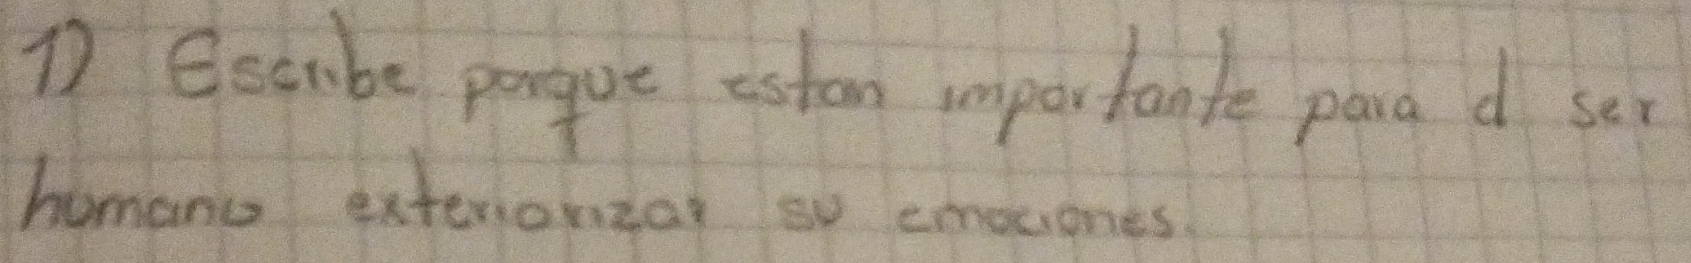 1) Escribe porque estan importante para el ser
humano exteriorizar su emociones.